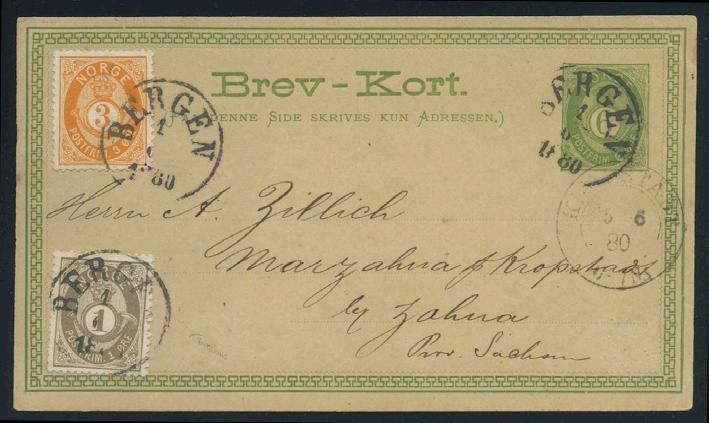 Brev-Kort.
(DENNE SIDE SKRIVES KUN ADRESSEN.)
NORGE
3
POSTFRIM. 3 ØRE
BERGEN
1
1880
BERGEN
1
1880
POSTFRIM.
5 6
80
Herrn A. Zillich
Marzahna p/ Kropstadt
by Zahna
Prov. Sachsen
BERGEN
1
1
POSTFRIM. 1 ØRE